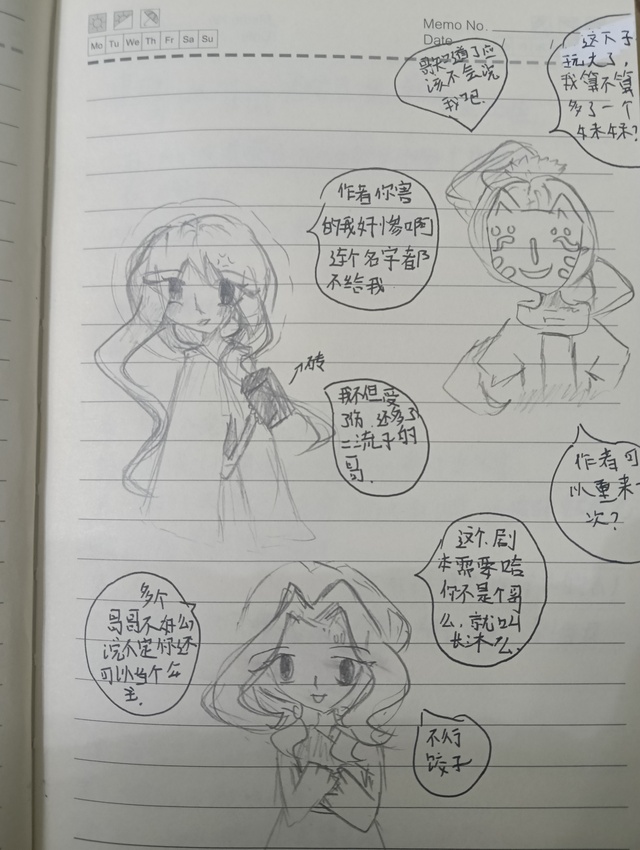 Memo No.
Date
Mo Tu We Th Fr Sa Su
哥知道了应
该不会说
我吧.
这下子
玩大了,
我算不算
多了一个
妹妹?
作者你害
的我好惨啊
连个名字都
不给我
砖
我不但受
了伤,还多了
二流子的
哥.
作者可
以重来一
次?
这个剧
本需要哈
你不是个
么,就叫
长末么.
多个
哥哥不好么
说不定你还
可以当个公
主.
不行
饺子